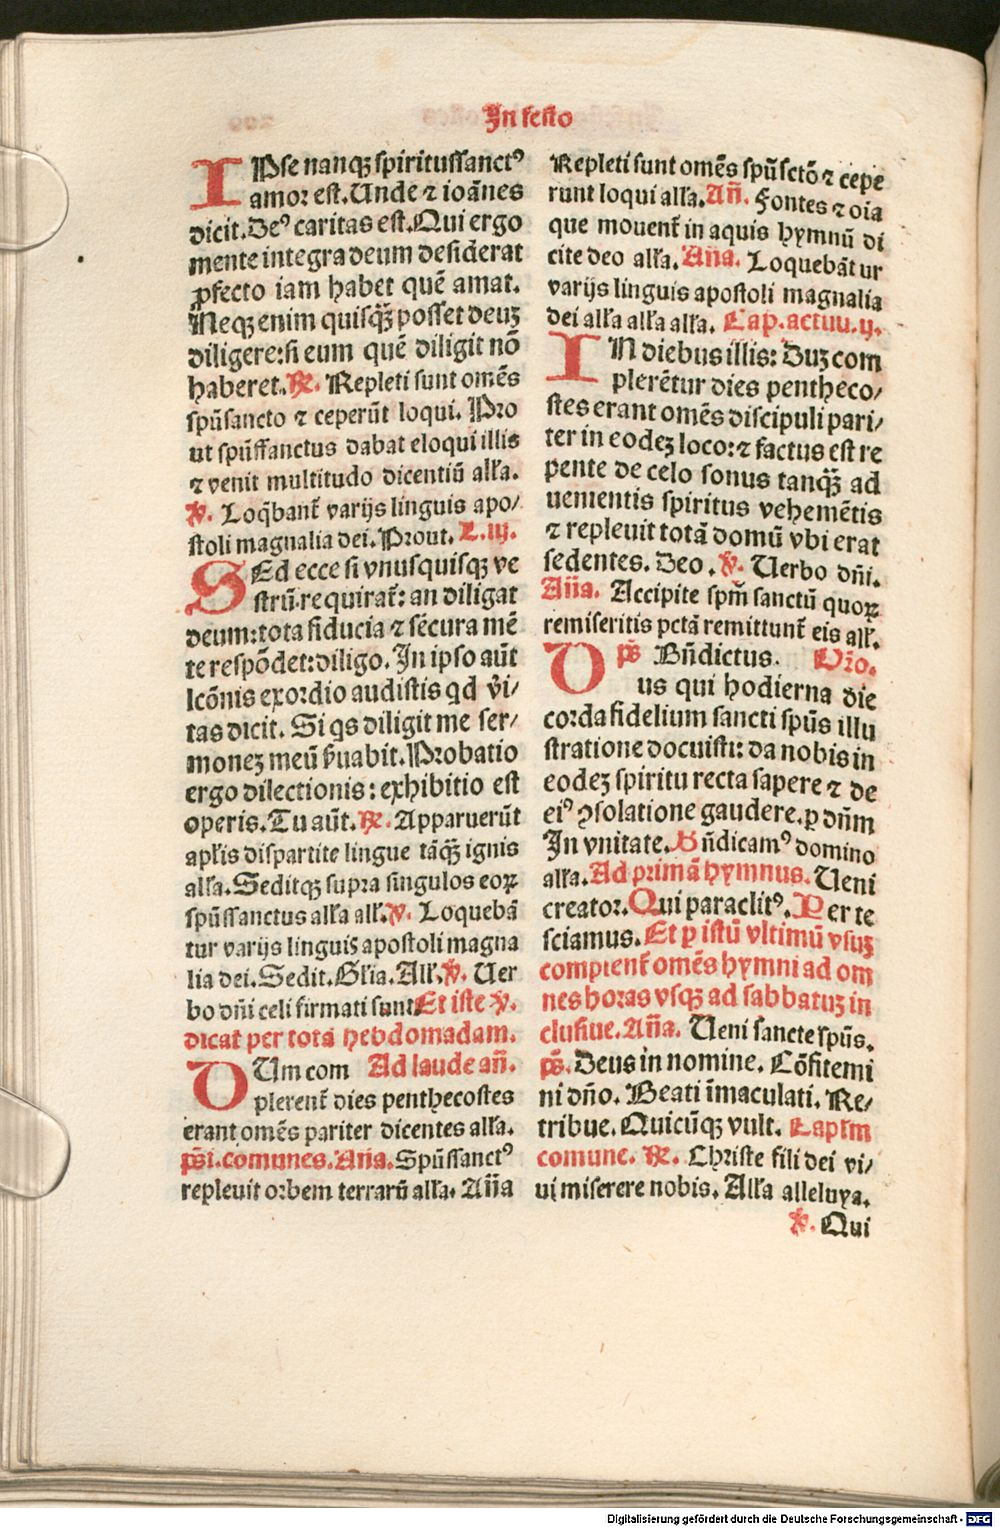 In festo
IPse nanqꝫ spiritussanctꝰ
amor est. Unde ⁊ ioānes
dicit. Deꝰ caritas est. Qui ergo
mente integra deum desiderat
ꝓfecto iam habet quē amat.
Neqꝫ enim quisqꝫ̄ posset deuꝫ
diligere: si eum quē diligit nō
haberet. ℟. Repleti sunt omēs
spūsancto ⁊ ceperūt loqui. Pro
ut spūssanctus dabat eloqui illis
⁊ venit multitudo dicentiū alła.
℣. Loq̄bant̄ varijs linguis apo/
stoli magnalia dei. Prout. L. iij.
SEd ecce si vnusquisqꝫ ve
strū. requirat̄: an diligat
deum: tota fiducia ⁊ sēcura mē
te respōdet: diligo. In ipso aūt
lcōnis exordio audistis qd v̄i/
tas dicit. Si qs diligit me ser/
moneꝫ meū ẜuabit. Probatio
ergo dilectionis: exhibitio est
operis. Tu aūt. ℟. Apparuerūt
apłis dispartite lingue tāqꝫ̄ ignis
alła. Seditqꝫ supra singulos eoꝝ
spūssanctus alła ałł. ℣. Loquebā
tur varijs linguis apostoli magna
lia dei. Sedit. Głia. Ałł. ℣. Uer
bo dn̄i celi firmati sunt Et iste ℣.
dicat̄ per totā hebdomadam.
DUm com Ad laude an̄.
plerent̄ dies penthecostes
erant omēs pariter dicentes alła.
pẜi. comunes. An̄a. Spūssanctꝰ
repleuit orbem terrarū alła. An̄a
Repleti sunt omēs spūsctō ⁊ cepe
runt loqui alła. An̄. Fontes ⁊ oīa
que mouent̄ in aquis hymnū di
cite deo alła. An̄a. Loquebāt ur
varijs linguis apostoli magnalia
dei alła alła alła. Cap. actuu. ij.
IN diebus illis: Duꝫ com
plerētur dies pentheco/
stes erant omēs discipuli pari/
ter in eodeꝫ loco: ⁊ factus est re
pente de celo sonus tanqꝫ̄ ad
uenientis spiritus vehemētis
⁊ repleuit totā domū vbi erat
sedentes. Deo. ℣. Uerbo dn̄i.
An̄a. Accipite spm̄ sanctū quoꝝ
remiseritis pctā remittunt̄ eis ałł.
pẜ Bn̄dictus. Oro.
DUs qui hodierna die
corda fidelium sancti spūs illu
stratione docuisti: da nobis in
eodeꝫ spiritu recta sapere ⁊ de
eiꝰ ꝯsolatione gaudere. ꝑ dn̄m
In vnitate. Bn̄dicamꝰ domino
alła. Ad primā hymnus. Ueni
creator. Qui paraclitꝰ. Per te
sciamus. Et ꝑ istū vltimū vsuꝫ
complent̄ omēs hymni ad om
nes horas vsqꝫ ad sabbatuꝫ in
clusiue. An̄a. Ueni sancte spūs.
pẜ. Deus in nomine. Cōfitemi
ni dn̄o. Beati īmaculati. Re/
tribue. Quicūqꝫ vult. Capłm
comune. ℟. Christe fili dei vi/
ui miserere nobis. Alła alleluya.
℣. Qui
Digitalisierung gefördert durch die Deutsche Forschungsgemeinschaft - DFG